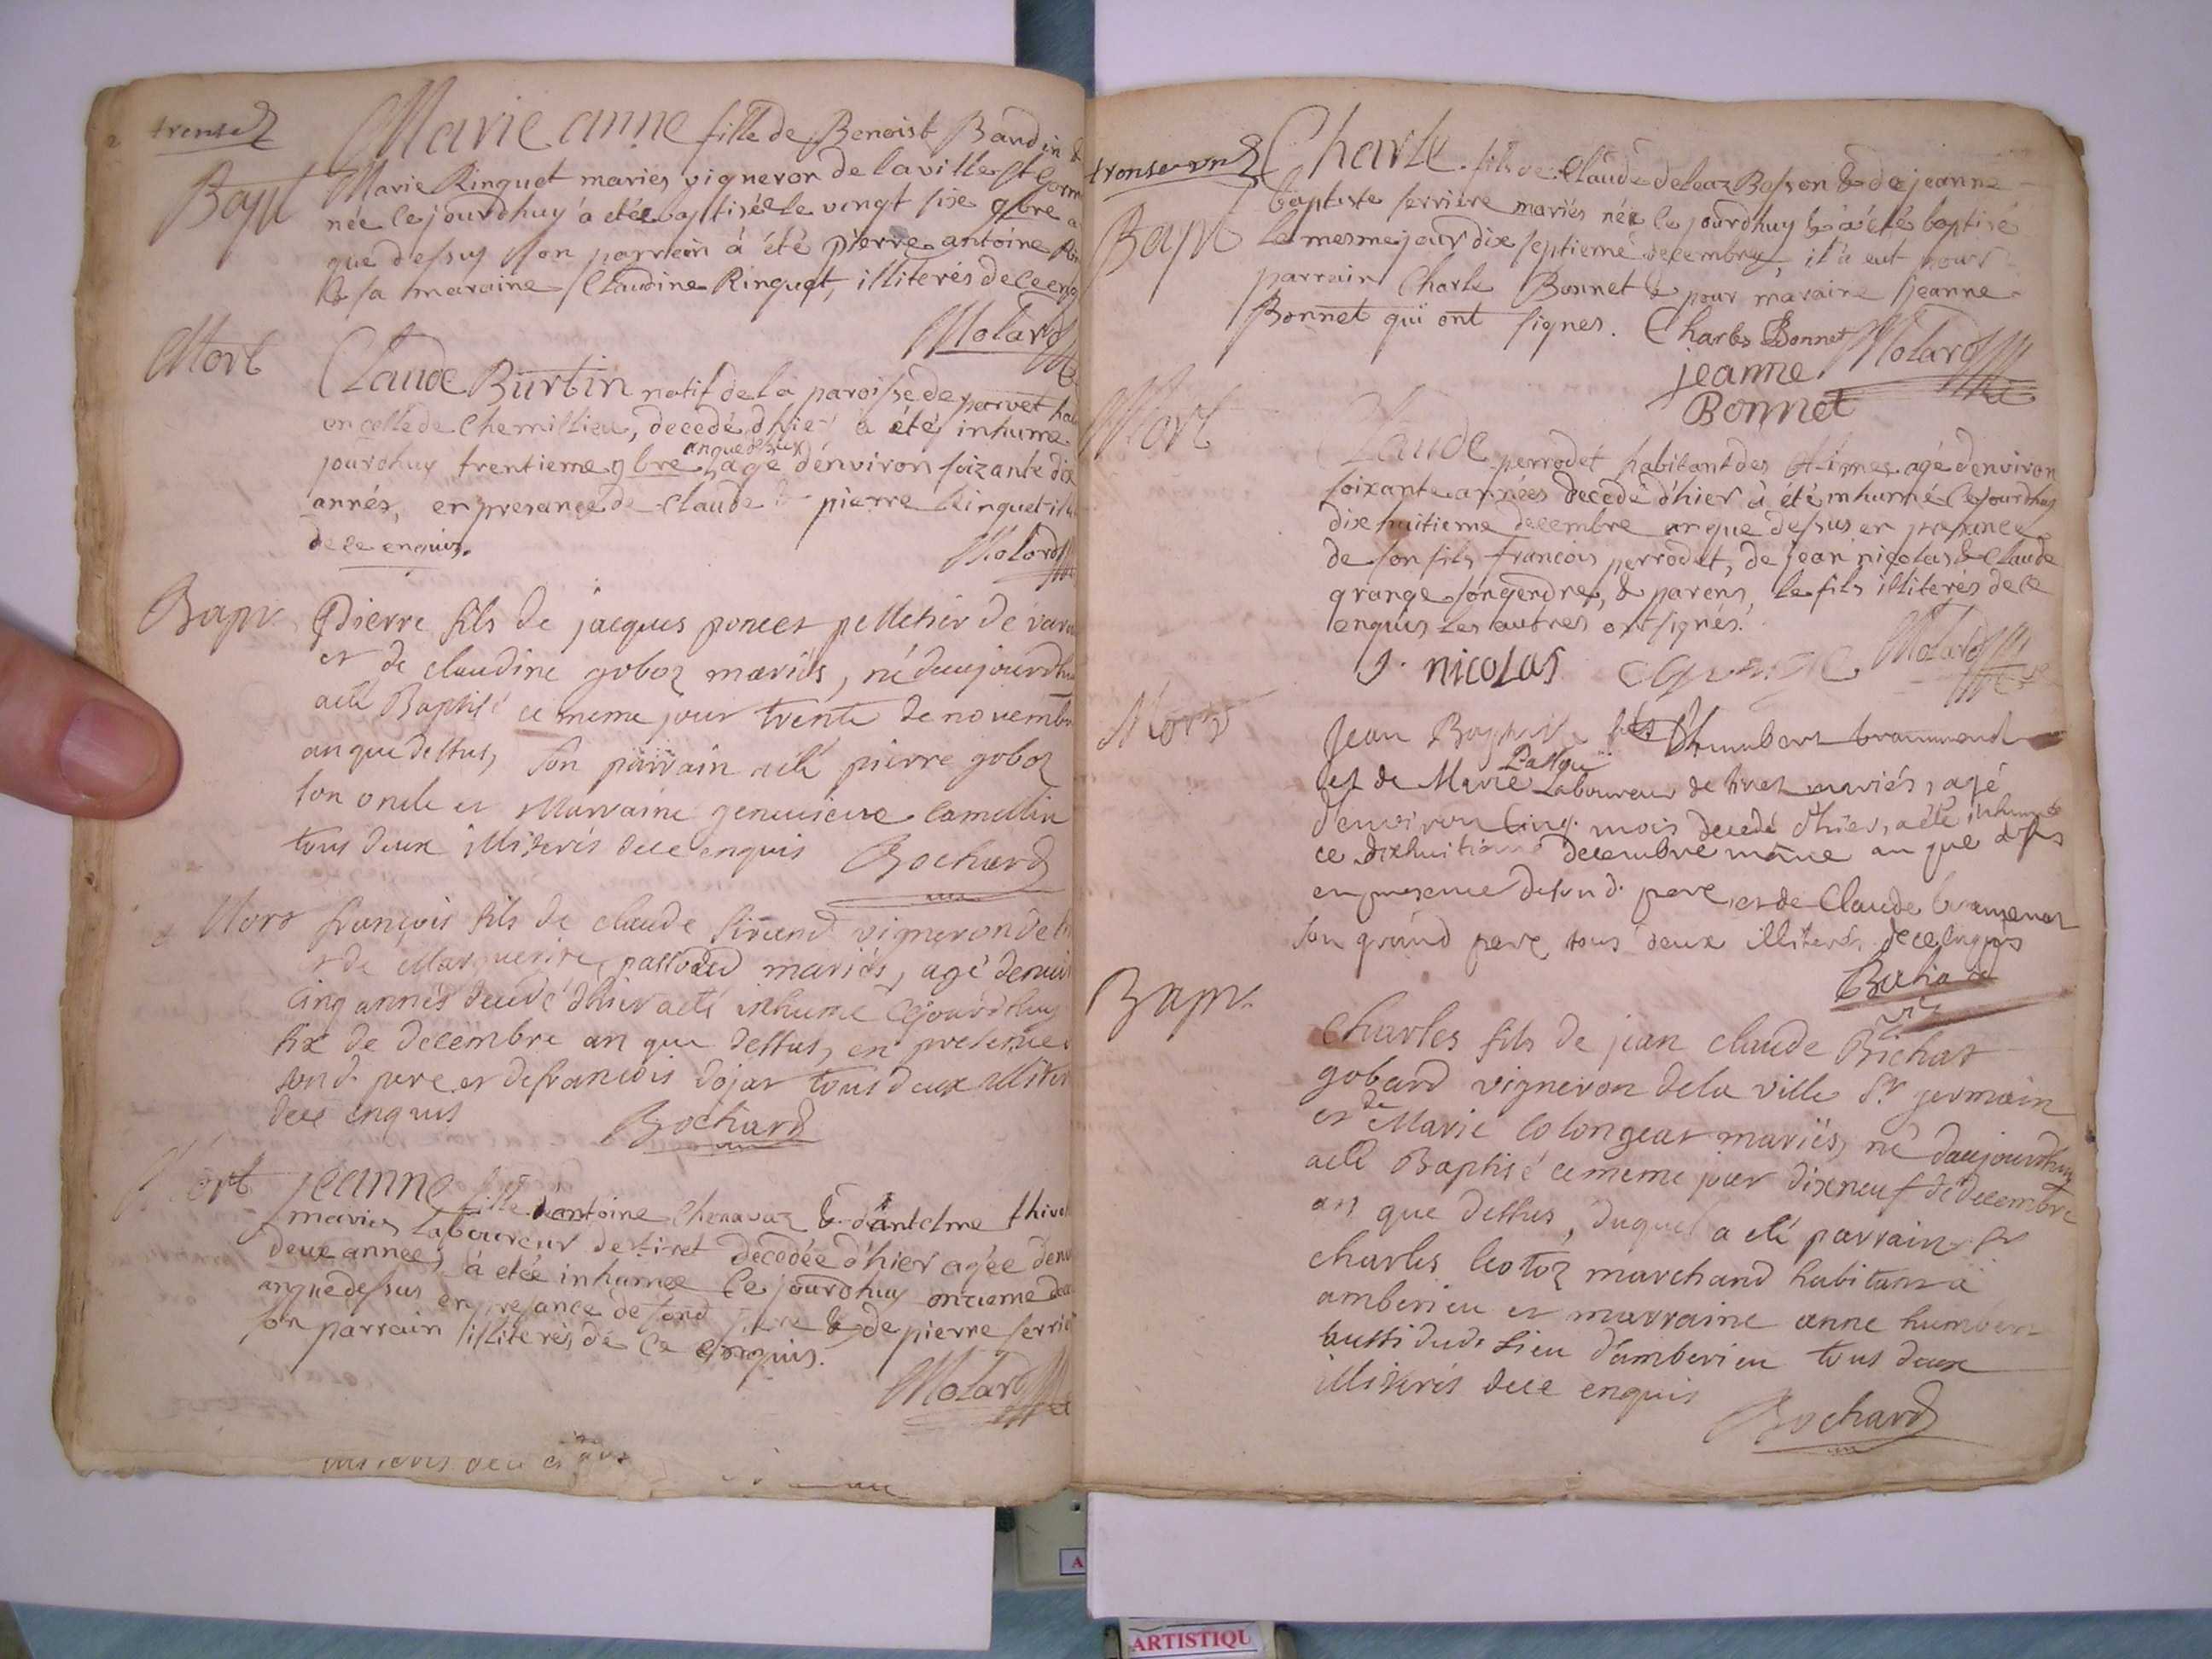 trente
Bapt
Marie anne fille de Benoist Baudin &
Marie Rinquet mariés vigneron de la ville St Germ
née le jourdhuy a etée baptisée le vingt sixe 9bre a
que dessus son parrein à été pierre antoine
& sa maraine Claudine Rinquet, illiterés de ce enq
Molard
Mort
Claude Burtin natif de la paroisse de parvet hab
en celle de Chemillieu, decedé d'hier à été inhume
anquedessus
jourdhuy trentieme 9bre agé d'environ soizante dix
annés, en presance de Claude & pierre Rinquet ill
de ce enquis.
Molard
Bapt
Pierre fils de jacques poncet pelletier de
et de claudine goboz mariés, né daujourdhu
a été Baptisé ce meme jour trente de novembre
an que dessus, son parrain a été pierre goboz
son oncle et Marraine genevieve camellin
tous deux illiterés de ce enquis Bochard
Mort
françois fils de claude Sirand vigneron de
et de Marguerite passoded mariés, agé denvi
cinq années decedé dhier a eté inhumé cejourdhuy
six de decembre an que dessus, en presence
sond. pere et de francois dojat tous deux illiter
de ce enquis Bochard
Mort
jeanne fille d'antoine Chenavaz & d'antelme thiv
mariés laboureur de tiret decedée d'hier agée denv
deux années, à etée inhumee ce jourdhuy onzieme de
anquedessus en presance de sond pere & de pierre serri
son parrain illiterés de ce enquis.
Molard
trente un
Bapt
Charle fils de Claude deleaz Bosson & de jeanne
baptiste serriere mariés née le jourdhuy & à été baptisé
le mesme jour dix septiemé decembre, il à eut pour
parrain Charle Bonnet & pour maraine jeanne
Bonnet qui ont signes. Charles Bonnet Molard
jeanne
Bonnet
Mort
Claude perrodet habitant des Allimes agé denviron
soixante années decedé d'hier à été inhumé ce jourdhuy
dix huitieme decembre an que dessus en presance
de son fils francois perrodet, de jean nicolas & Claude
grange son gendre, & parens, le fils illiterés de ce
enquis les autres ont signés.
J. nicolas C grange Molard
Mort
Jean Baptiste fils d'humbert brammerel
Passoü
et de Marie Laboureur de tiret mariés, agé
d'environ cinq mois decedé d'hier, a été inhumé
ce dixhuitieme decembre meme an que dessus
en presence de sond. pere, et de Claude
son grand pere tous deux illiterés de ce enquis
Bochard
Bapt
Charles fils de jean claude Richat
gobard vigneron de la ville St germain
de
et Marie Colongeat mariés, né daujourdhuy
a eté Baptisé ce meme jour dixneuf de decembre
an que dessus, duquel a eté parrain
charles leotoz marchand habitant à
amberieu et marraine anne humbert
aussi dud. lieu d'amberieu tous deux
illiterés de ce enquis
Bochard
A
ARTISTIQU